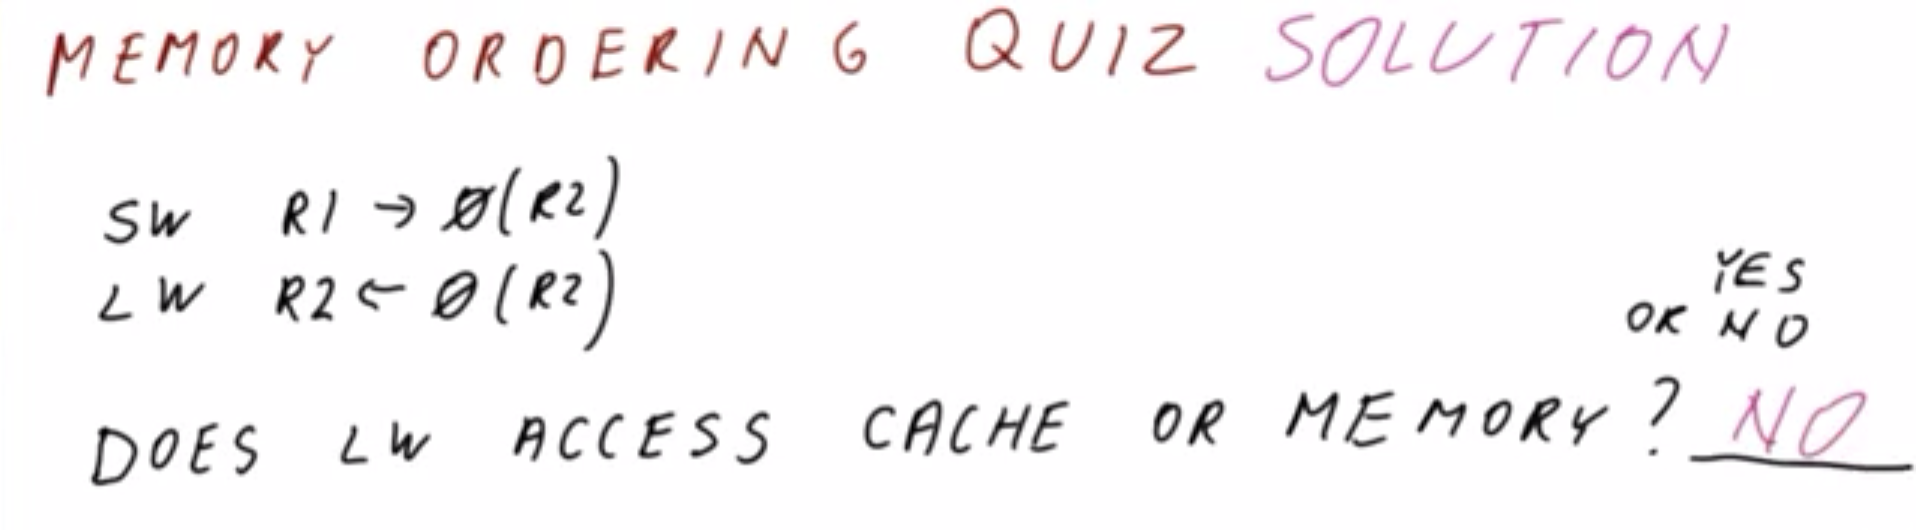 MEMORY ORDERING QUIZ SOLUTION
SW R1 → 0(R2)
LW R2 ← 0(R2)
YES
OR NO
DOES LW ACCESS CACHE OR MEMORY? NO